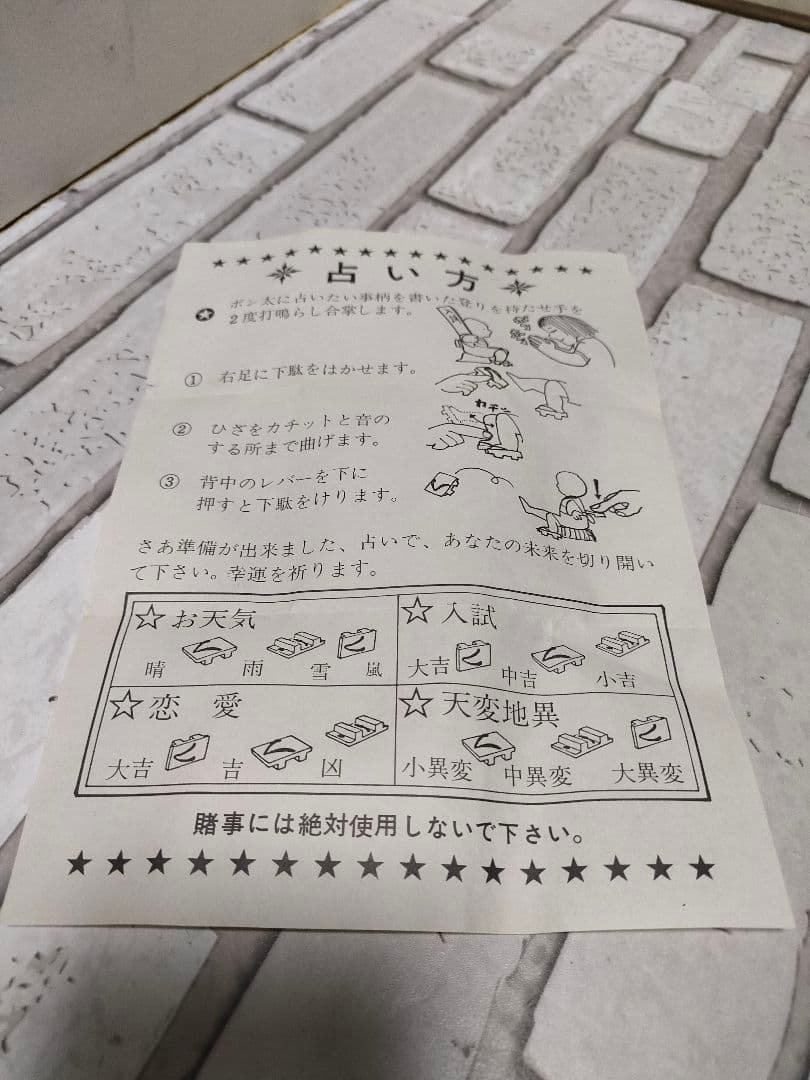 ★★★★★★★★★★★★★★★
占い方
✪ ポン太に占いたい事柄を書いた登りを持たせ手を
2度打鳴らし合掌します。
① 右足に下駄をはかせます。
カチッ
② ひざをカチットと音の
する所まで曲げます。
③ 背中のレバーを下に
押すと下駄をけります。
さあ準備が出来ました、占いで、あなたの未来を切り開い
て下さい。幸運を祈ります。
☆お天気
晴 雨 雪 嵐
☆入試
大吉 中吉 小吉
☆恋愛
大吉 吉 凶
☆天変地異
小異変 中異変 大異変
賭事には絶対使用しないで下さい。
★★★★★★★★★★★★★★★★★